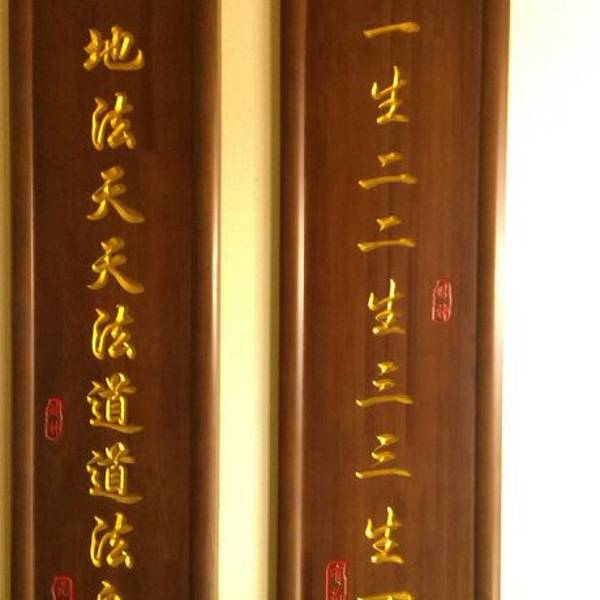 一生二二生三三生
地法天天法道道法